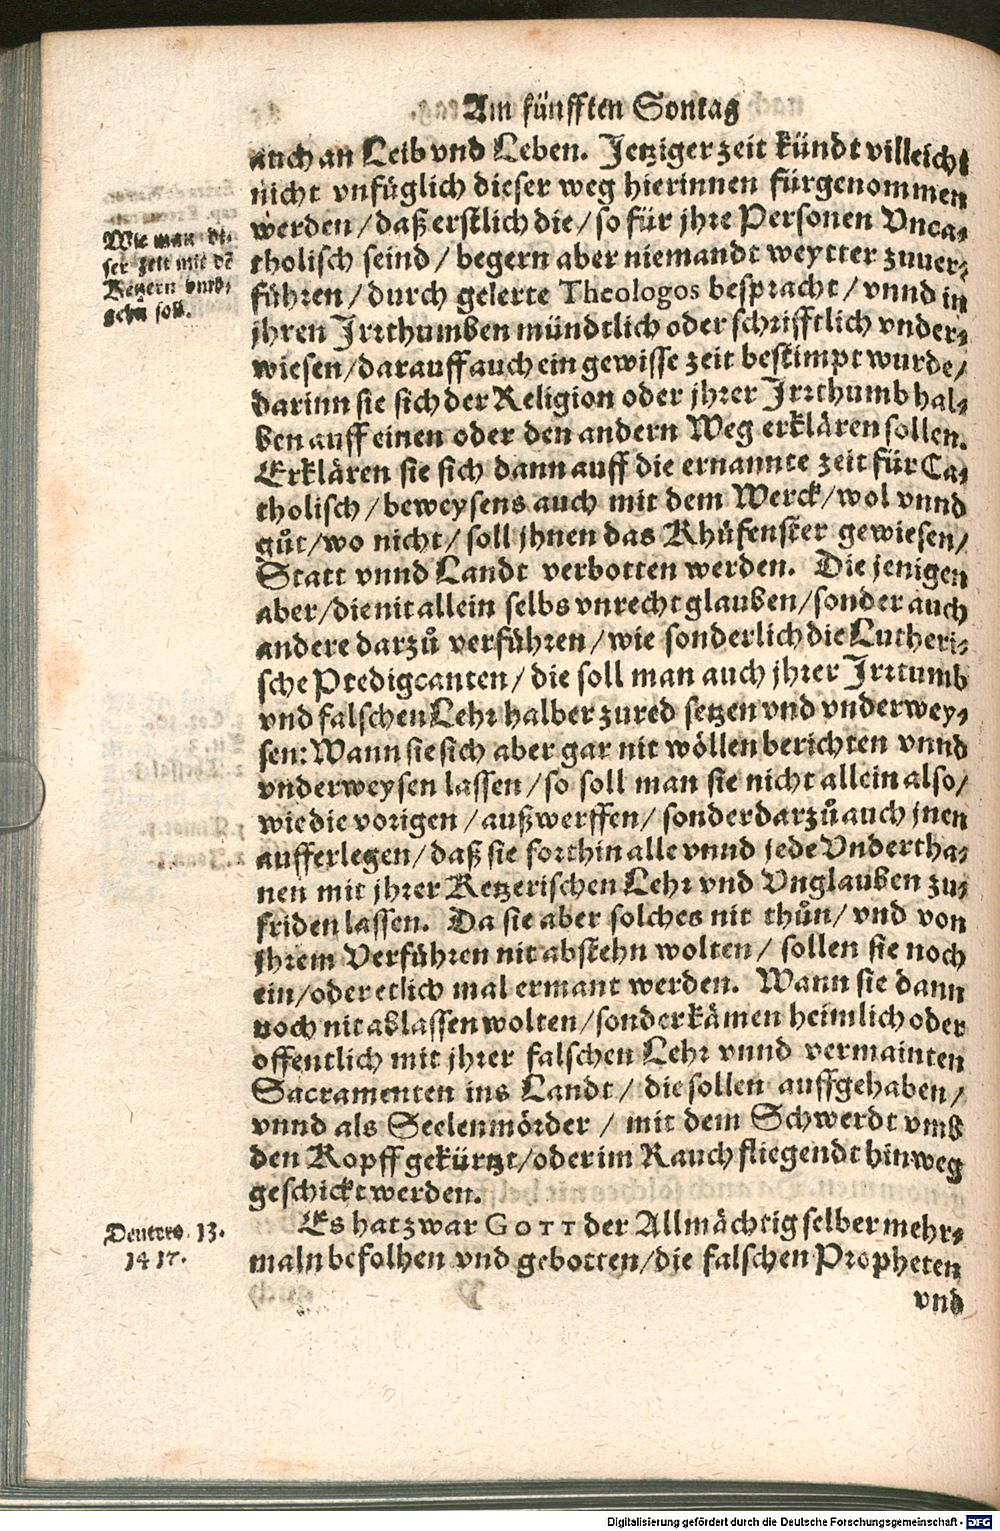 Am fünfften Sontag
auch an Leib vnd Leben. Jetziger zeit kündt villeicht
nicht vnfüglich dieser weg hierinnen fürgenommen
werden / daß erstlich die / so für jhre Personen Vnca-
tholisch seind / begern aber niemandt weytter zuuer-
führen / durch gelerte Theologos bespracht / vnnd in
jhren Irrthumben mündtlich oder schrifftlich vnder-
wiesen / darauff auch ein gewisse zeit bestimpt wurde /
darinn sie sich der Religion oder jhrer Irrthumb hal-
ben auff einen oder den andern Weg erklären sollen.
Erklären sie sich dann auff die ernannte zeit für Ca-
tholisch / beweysens auch mit dem Werck / wol vnnd
gůt / wo nicht / soll jhnen das Khüfenster gewiesen /
Statt vnnd Landt verbotten werden. Die jenigen
aber / die nit allein selbs vnrecht glauben / sonder auch
andere darzů verführen / wie sonderlich die Lutheri-
sche Predigcanten / die soll man auch jhrer Irrtumb
vnd falschen Lehr halber zured setzen vnd vnderwey-
sen: Wann sie sich aber gar nit wöllen berichten vnnd
vnderweysen lassen / so soll man sie nicht allein also /
wie die vorigen / außwerffen / sonder darzů auch jnen
aufferlegen / daß sie forthin alle vnnd jede Vndertha-
nen mit jhrer Ketzerischen Lehr vnd Vnglauben zu-
friden lassen. Da sie aber solches nit thůn / vnd von
jhrem Verführen nit abstehn wolten / sollen sie noch
ein / oder etlich mal ermant werden. Wann sie dann
noch nit ablassen wolten / sonder kämen heimlich oder
offentlich mit jhrer falschen Lehr vnnd vermainten
Sacramenten ins Landt / die sollen auffgehaben /
vnnd als Seelenmörder / mit dem Schwerdt vmb
den Kopff gekürtzt / oder im Rauch fliegendt hinweg
geschickt werden.
Es hat zwar GOTT der Allmächtig selber mehr-
maln befolhen vnd gebotten / die falschen Propheten
vnd
Wie man di-
ser zeit mit dẽ
Ketzern vmb-
gehn soll.
Deutero. 13.
14 17.
Digitalisierung gefördert durch die Deutsche Forschungsgemeinschaft - DFG